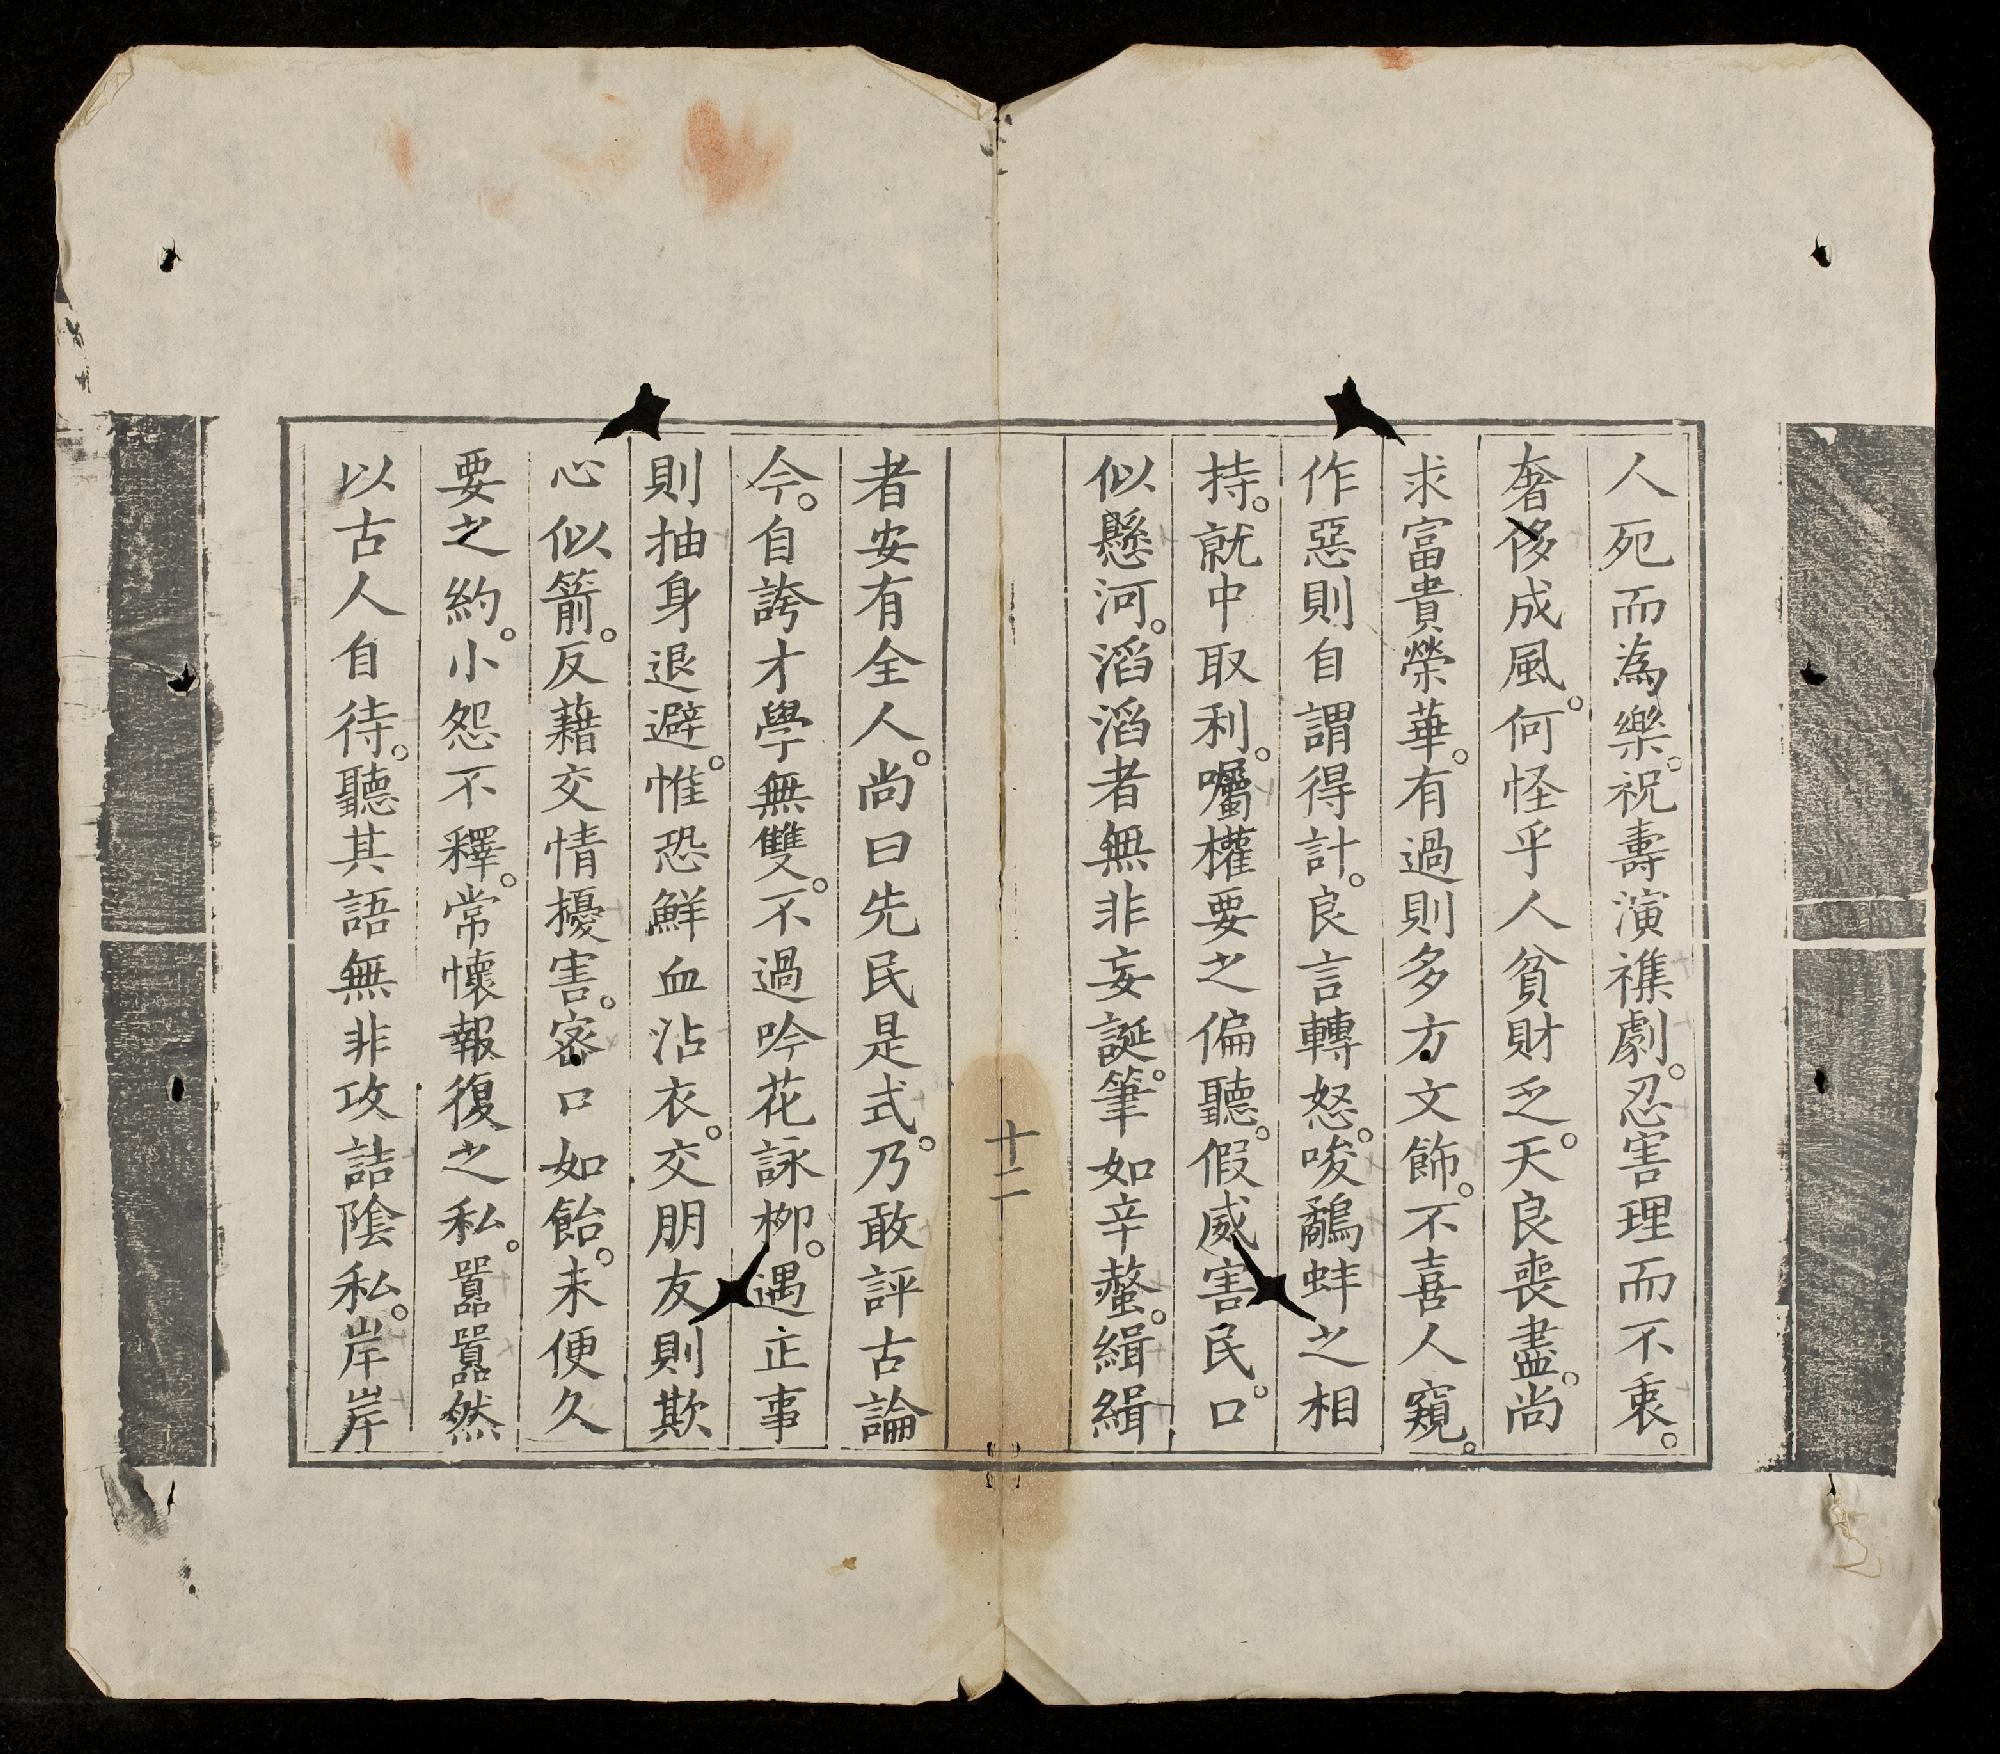 人死而為樂。祝壽演襍劇。忍害理而不衷。
奢侈成風。何怪乎人貧財乏。天良喪盡。尚
求富貴榮華。有過則多方文飾。不喜人窺。
作惡則自謂得計。良言轉怒。唆鷸蚌之相
持。就中取利。囑權要之偏聽。假威害民。口
似懸河。滔滔者無非妄誕。筆如辛螫。緝緝
十二
者安有全人。尚曰先民是式。乃敢評古論
今。自誇才學無雙。不過吟花詠柳。遇正事
則抽身退避。惟恐鮮血沾衣。交朋友則欺
心似箭。反藉交情擾害。密口如飴。未便久
要之約。小怨不釋。常懷報復之私。囂囂然
以古人自待。聽其語無非攻詰陰私。岸岸